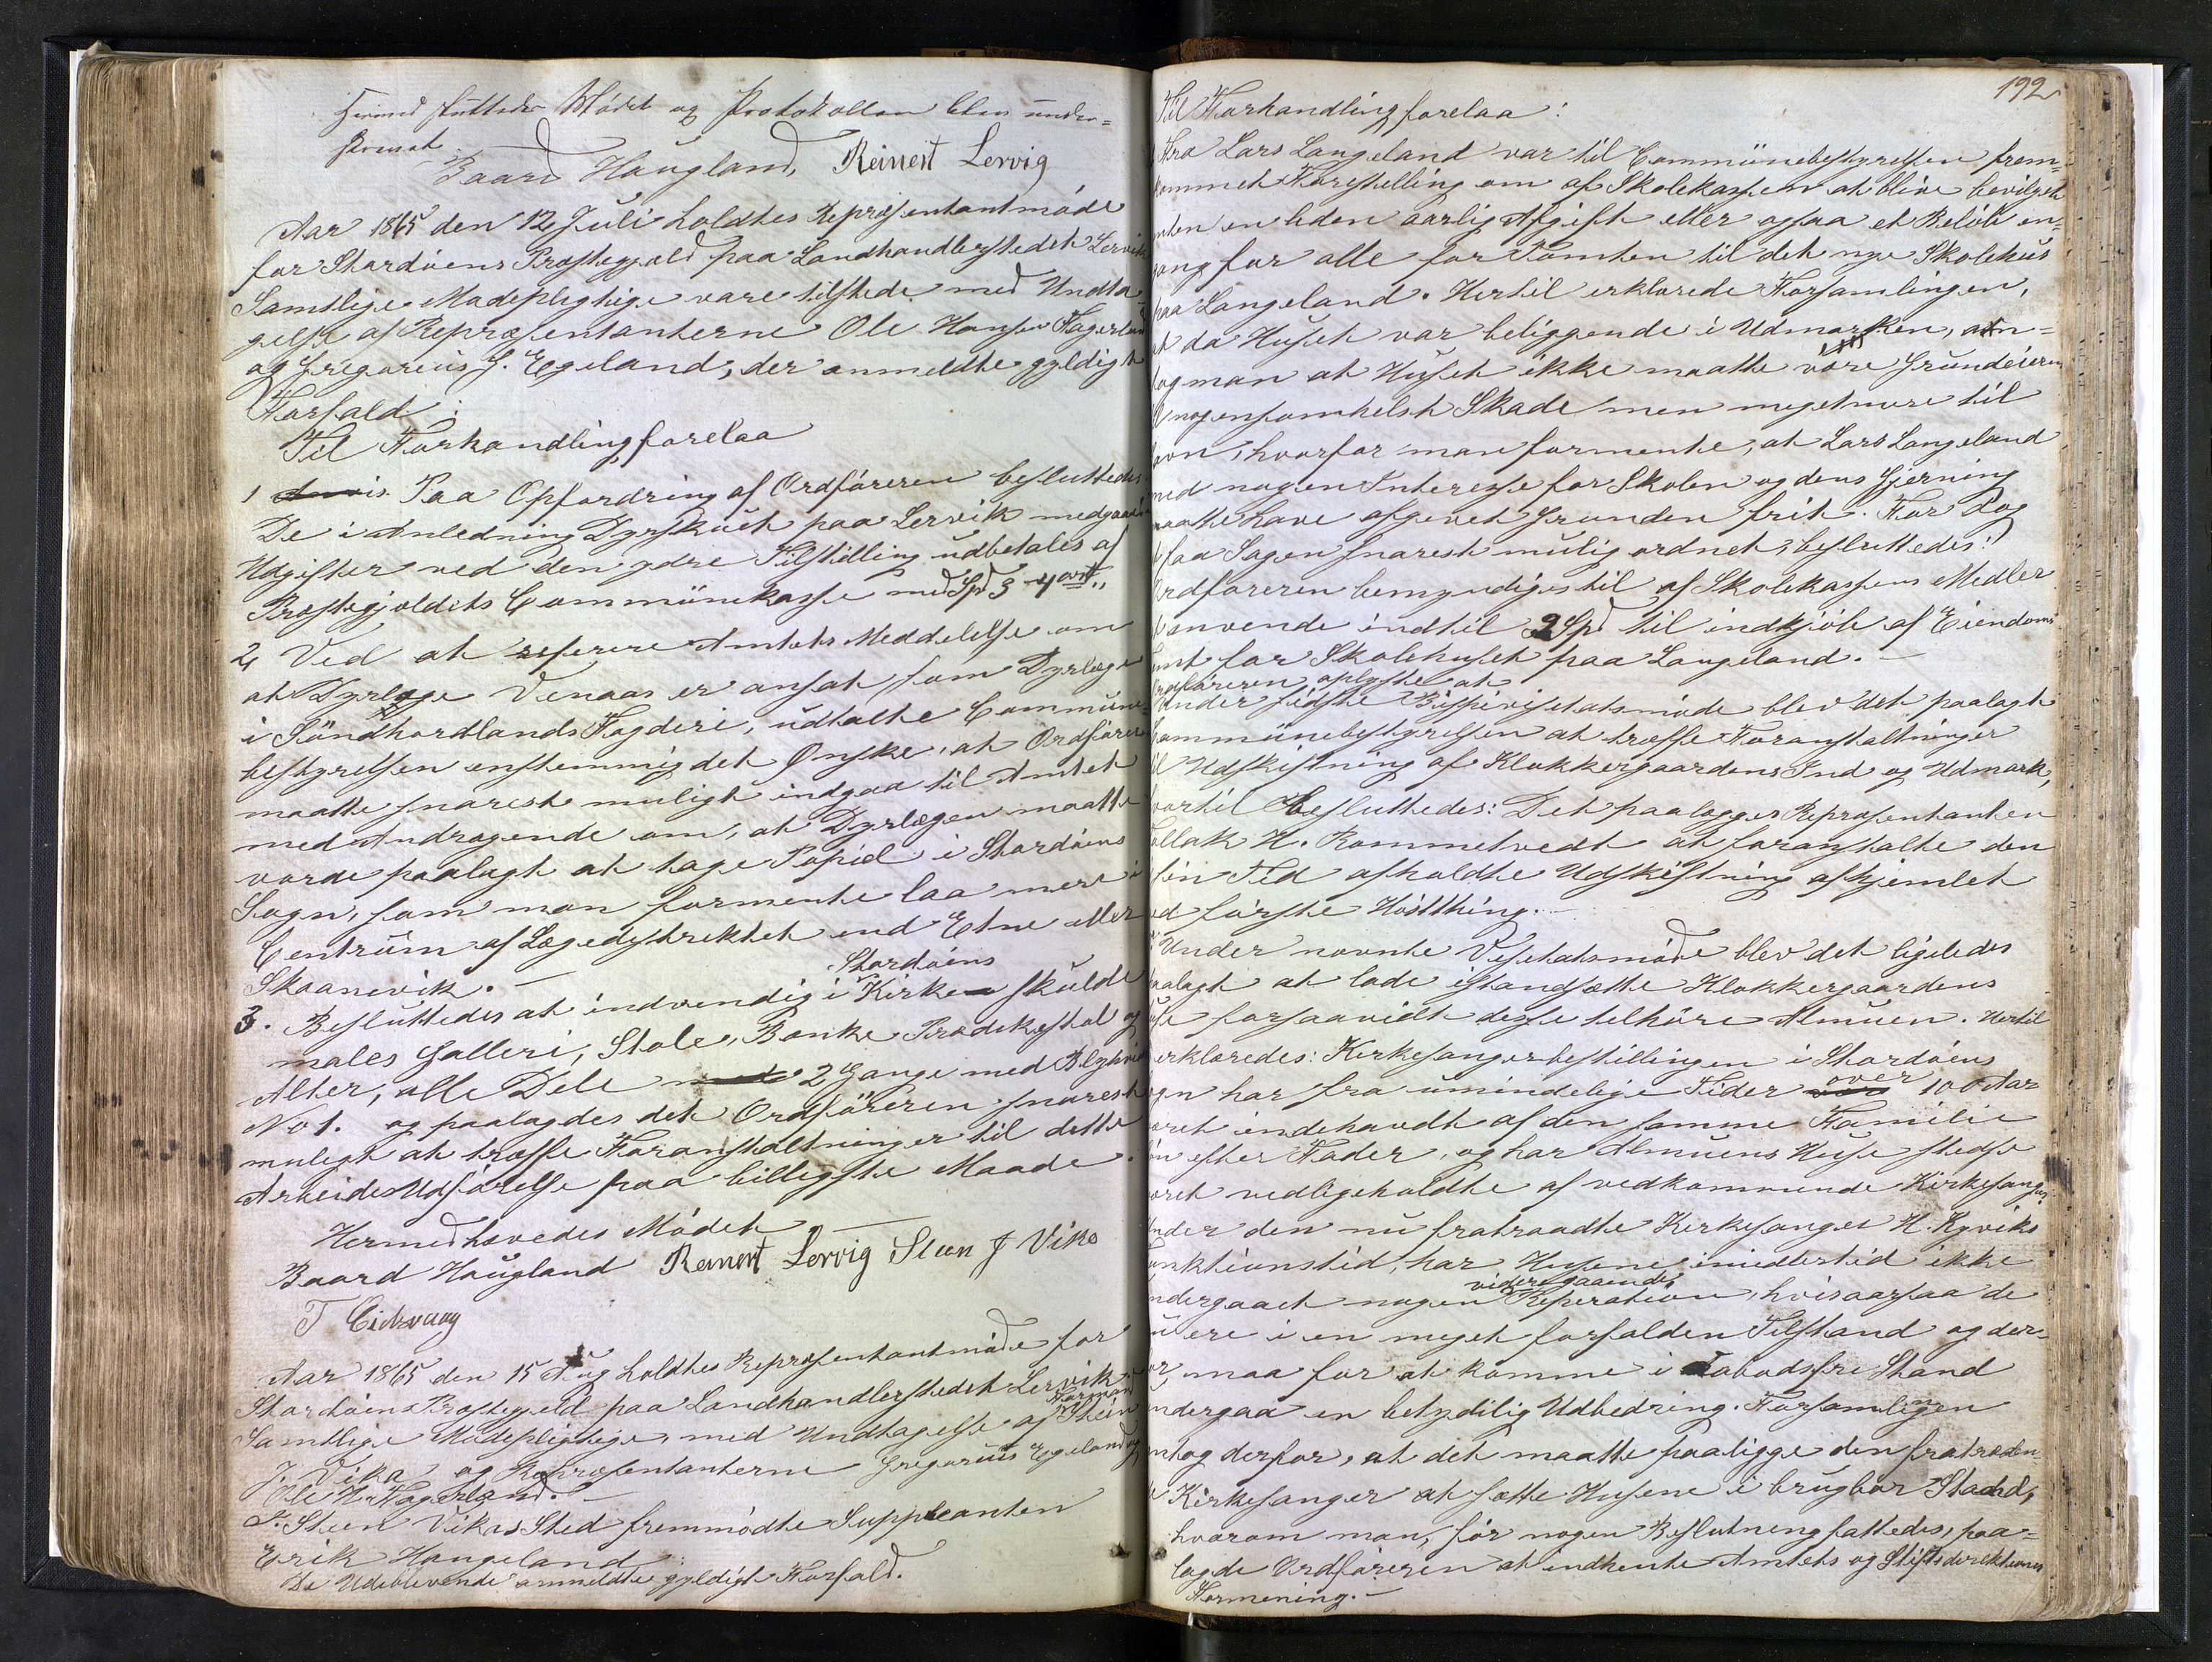 Hermed sluttedes Mødet og Protokollen blev under=
skrevet.
Baard Haugland, Reinert Lervig
Aar 1865 den 12 Juli holdtes Repræsentantmøde
for Stordøens Præstegjæld paa Landhandlerstedet Lervik
Samtlige Mødepligtige vare tilstede med Undta=
gelse af Repræsentanterne Ole Hansen Hagerland
og Gregorius J. Egeland, der anmeldte gyldigt
Forfald;
Til Forhandling forelaa
1 Paa Opfordring af Ordføreren besluttedes
De i Anledning Dyrskuet paa Lervik medgaaede
Udgifter ved den ydre Tilstilling udbetales af
Præstegjældets Communekasse med Spd 3 - 4 ort "
2, Ved at referere Amtets Meddelelse om
at Dyrlæge Venaas er ansat som Dyrlæge
i Söndhordlands Fogderi, udtalte Commune=
bestyrelsen enstemmig det Ønske, at Ordføreren
maatte snarest muligt indgaa til Amtet
med Andragende om, at Dyrlægen maatte
vorde paalagt at tage Bopæl i Stordøens
Sogn, som man formente laa mere i
Centrum af Lægedistriktet end Etne eller
Skaanevik. —
3. Besluttedes at indvendig i Stordøens Kirke skulde
males Galleri, Stole, Bænke Prædikestol og
Alter, alle Dele 2 Gange med Blyhvidt
No 1. og paalagdes det Ordføreren snarest
muligt at træffe Foranstaltninger til dette
Arbeides Udførelse paa billigste Maade.
Hermed hævedes Mødet —
Baard Haugland Reinert Lervig Steen J Vika
T Eidsvaag
Aar 1865 den 15 Aug holdtes Repræsentantmøde for
Stordøens Præstegjeld paa Landhandlerstedet Lervik.
Samtlige Mødepligtige, med Undtagelse af Formand Steen
J. Vika og Repræsentanterne Gregorius Egeland og
Ole H. Hagerland. —
I Steen Vikas Sted fremmødte Suppleanten
Erik Haugeland;
De Udeblevende anmeldte gyldigt Forfald.
192
Til Forhandling forelaa:
Fra Lars Langeland var til Communebestyrelsen frem=
kommet Forestilling om af Skolekassen at blive bevilget
enten en liden aarlig Afgift eller ogsaa et Beløb en=
gang for alle for Tomten til det nye Skolehus
paa Langeland. Hertil erklærede Forsamlingen,
at da Huset var beliggende i Udmarken, an=
tog man at Huset ikke maatte være Grundeieren
til nogensomhelst Skade men megetmere til
Gavn, hvorfor man formente, at Lars Langeland
med nogen Interesse for Skolen og dens Gjerning
maatte have afgivet Grunden frit. For Dog
at faa Sagen snarest mulig ordnet, besluttedes:
Ordføreren bemyndiges til af Skolekassens Midler
at anvende indtil 2 Spd til indkjøb af Eiendoms=
tomt for Skolehuset paa Langeland. —
Ordføreren oplyste at
Under sidste Bispevisitatsmøde blev det paalagt
Communebestyrelsen at træffe Foranstaltninger
til Udskiftning af Klokkergaardens Ind og Udmark,
hvortil besluttedes: Det paalægges Repræsentanten
Tollak H. Rommetvedt at foranstalte den
i sin Tid afholdte Udskiftning afhjemlet
ved første Høstthing. —
Under nævnte Visitatsmøde blev det ligeledes
paalagt at lade istandsætte Klokkergaardens
Huse forsaavidt disse tilhøre Almuen. Hertil
erklæredes: Kirkesangerbestillingen i Stordøens
Sogn har fra umindelige Tider over 100 Aar
været indehavdt af den samme Familie
Søn efter Fader, og har Almuens Huse stedse
været vedligeholdte af vedkommende Kirkesanger.
Under den nu fratraadte Kirkesanger H. Kyviks
Funktionstid, har Husene imidlertid ikke
undergaaet nogen videregaaende Reperation, hvisaarsaa de
nu ere i en meget forfalden Tilstand og der=
for maa for at komme i Aabodsfri Stand
undergaa en betydelig Udbedring. Forsamlingen
antog derfor, at det maatte paaligge den fratræden=
de Kirkesanger at sætte Husene i brugbar Stand,
hvorom man, før nogen Beslutning fattedes, paa=
lagde Ordføreren at indhente Amtets og Stiftsdirektionens
Formening. —